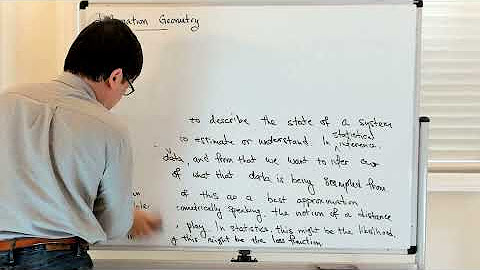 Information Geometry
to describe the state of a system
to estimate or understand. In statistical inference,
data, and from that we want to infer our
of what that data is being sampled from
of this as a best approximation
ometrically speaking, the notion of a distance
play. In statistics, this might be the likelihood,
this might be the loss function